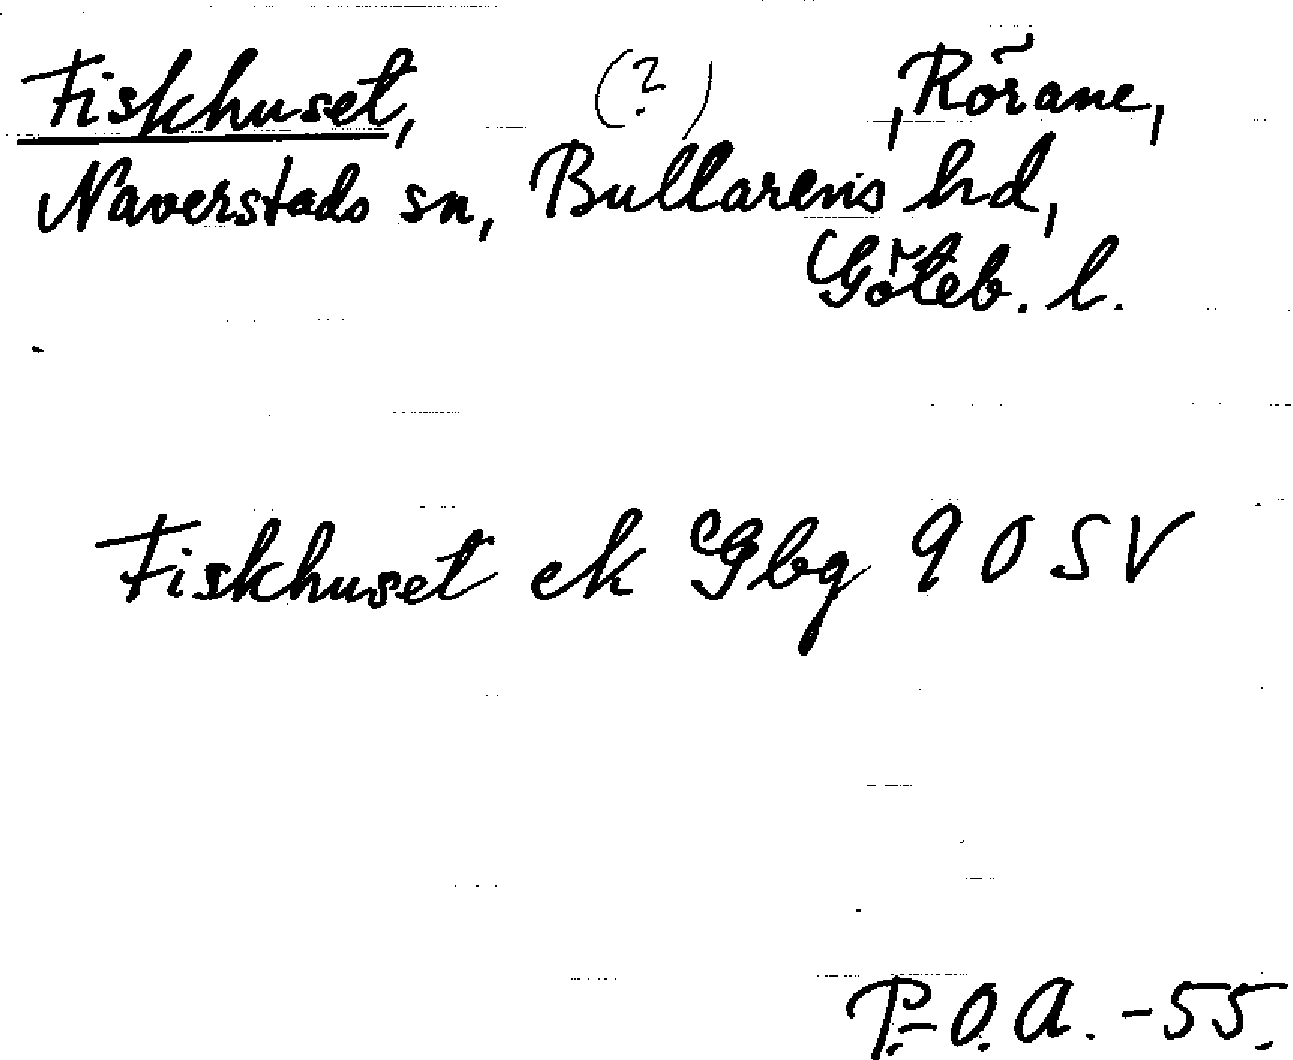 Fiskhuset, (?) , Rörane,
Naverstads sn, Bullarens hd,
Göteb. l.
Fiskhuset ek Gbg 90 SV
P.O.A. -55.